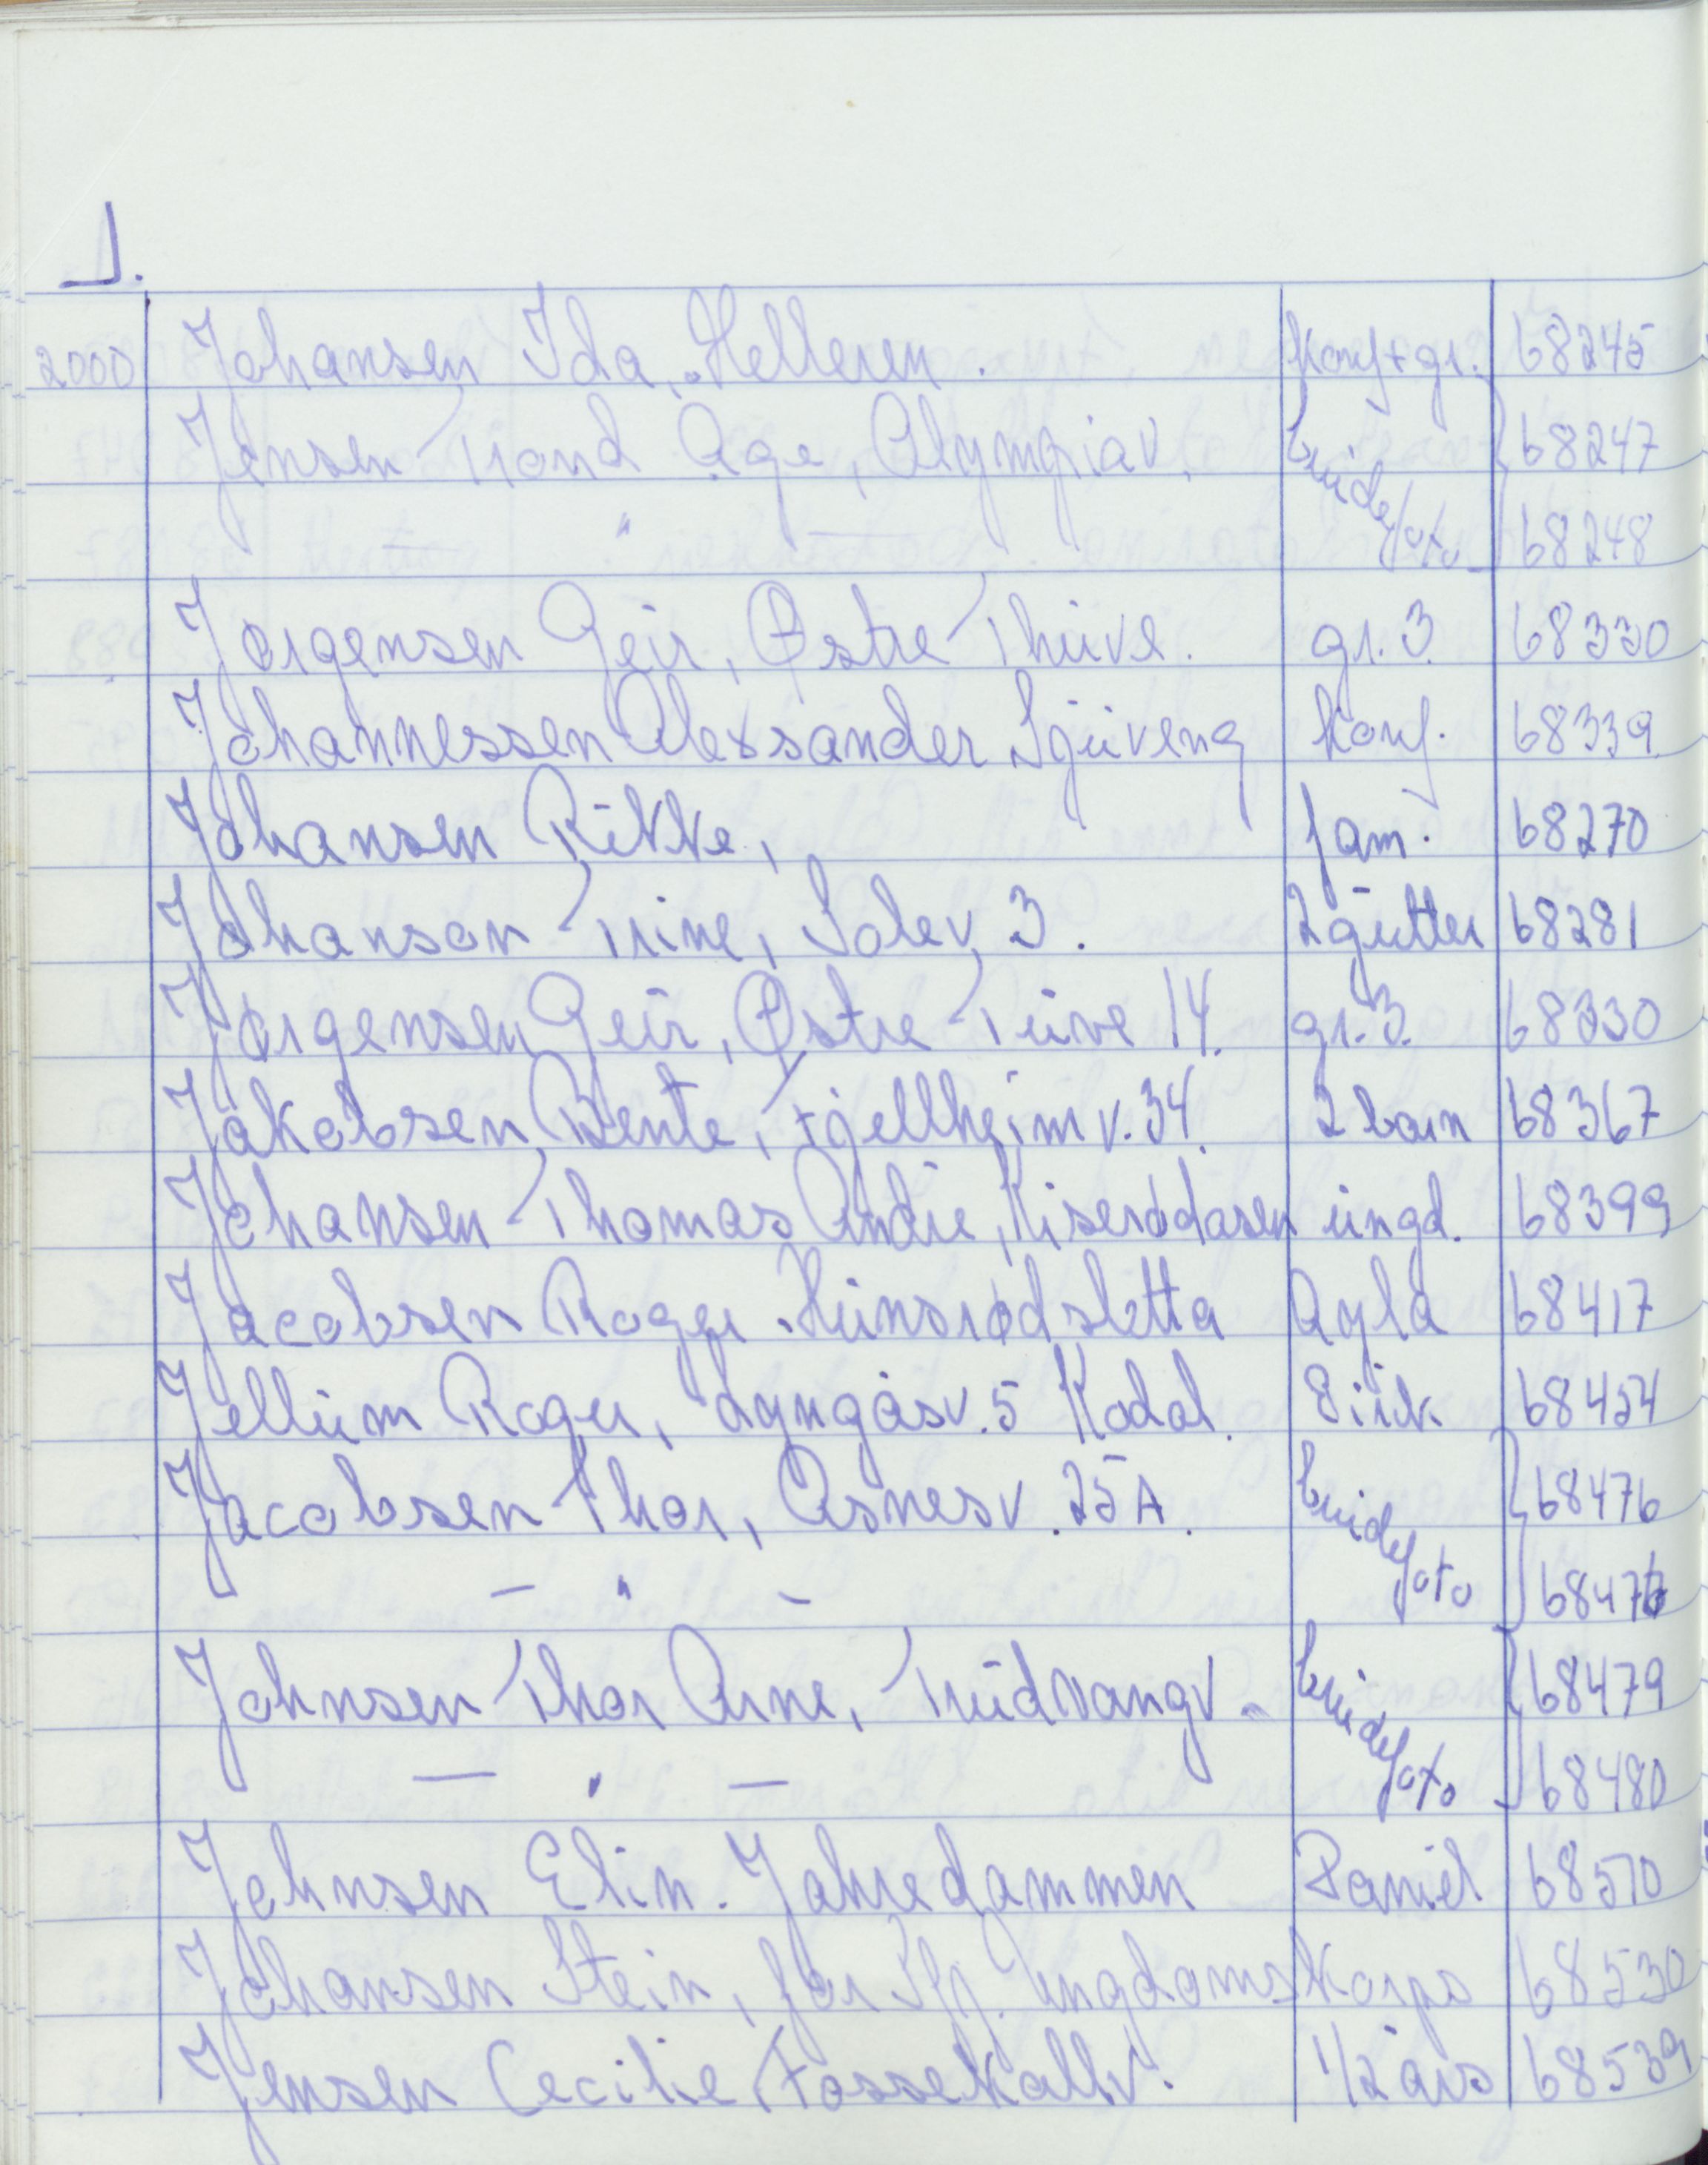 J.
2000 Johansen Ida, Helleren. konf+gr. 68245
Jensen Trond Åge, Olympiav. brudefoto 68247
" — 68248
Jørgensen Geir, Østre Thuve. gr. 3. 68330
Johannessen Alexsander Sjuveng konf. 68339
Johansen Rikke, fam. 68270
Johanson Trine, Solev. 3. 2 gutter 68281
Jørgensen Geir, Østre Tuve 14. gr. 3. 68330
Jakobsen Bente, Fjellheimv. 34. 2 barn 68367
Johansen Thomas Andre, Kiserødåsen ungd. 68399
Jacobsen Roger. Hunsrødsletta Ayla 68417
Jellum Roger, Lyngåsv. 5 Kodal. 8 uk. 68454
Jacobsen Thor, Åsnesv. 25A. brudefoto 68476
— " —
Johnsen Thor Arne, Trudvangv. brudefoto 68479
— " — 68480
Johnsen Elin. Jahredammen Daniel 68510
Johansen Stein, for Sfj. Ungdomskorps 68530
Jensen Cecilie, Fossekallv. 1/2 års 68539